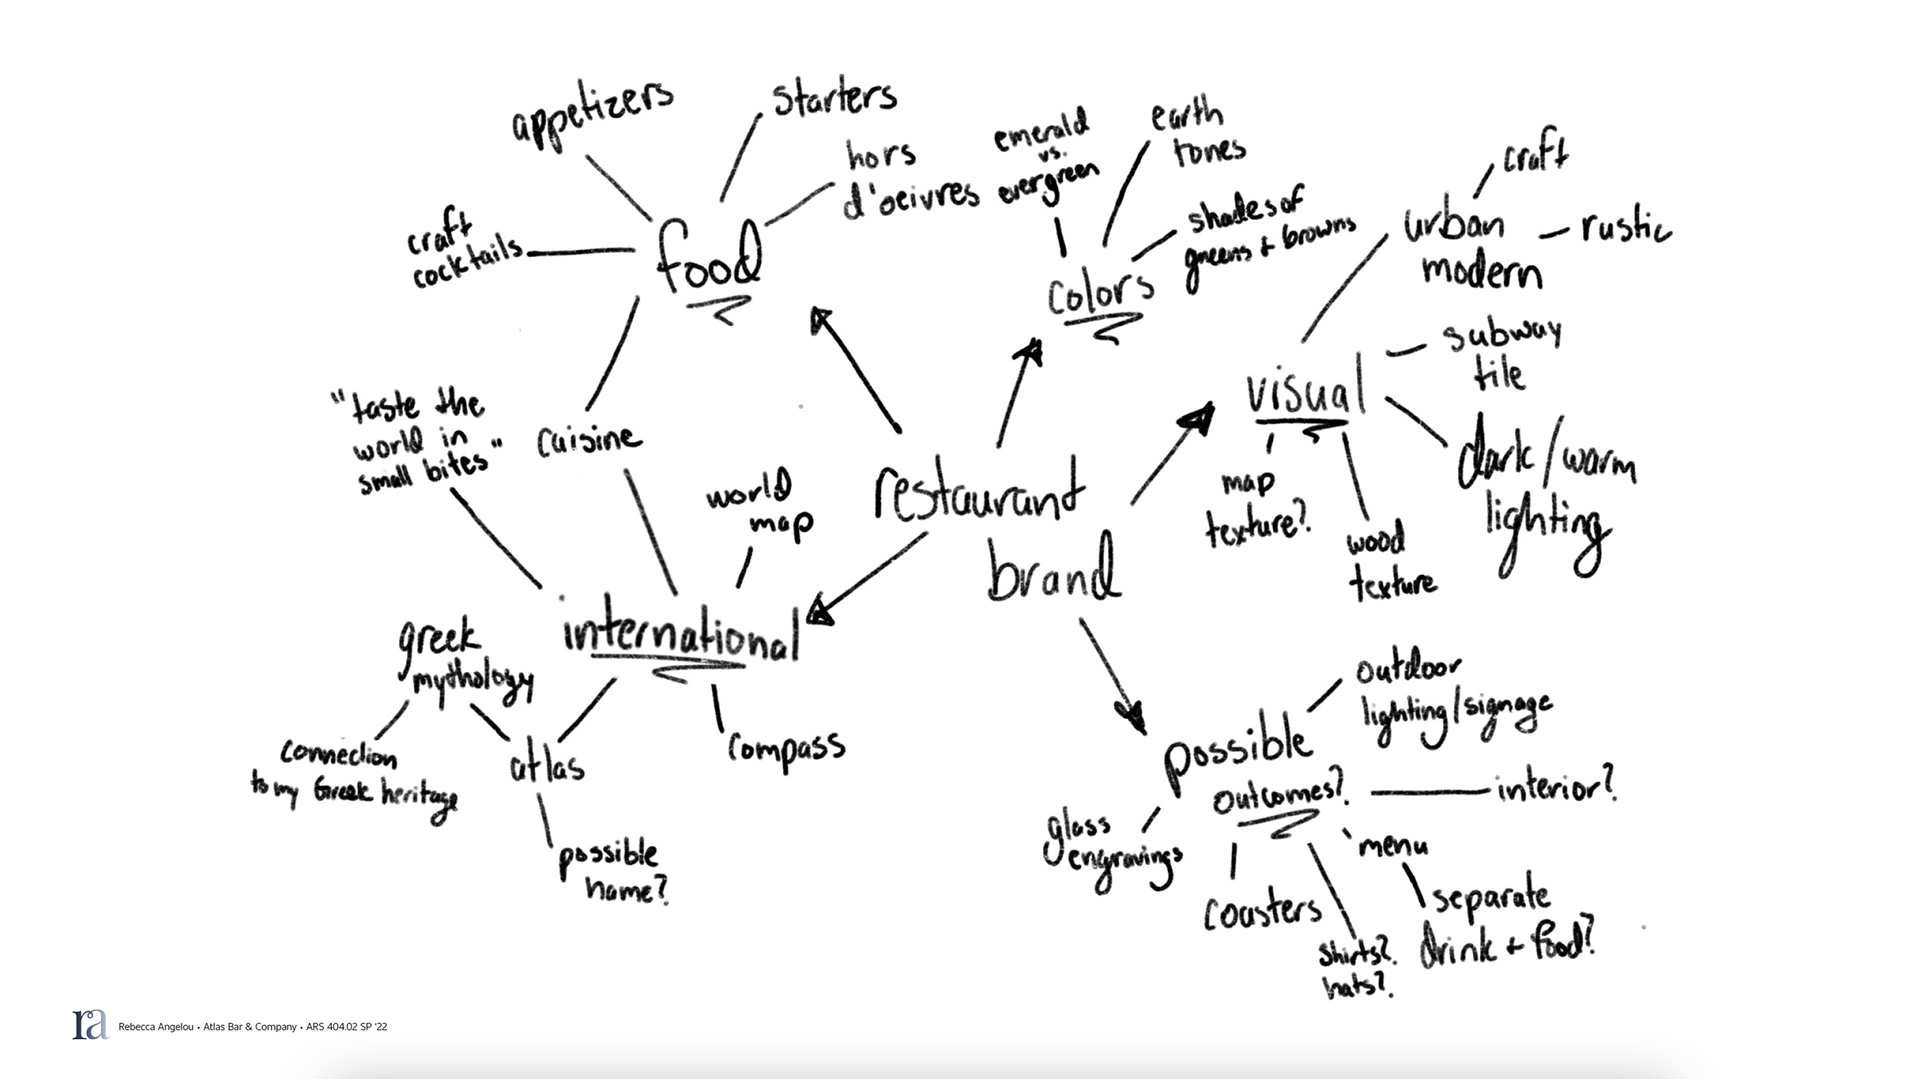 appetizers
starters
hors
d'oeivres
craft
cocktails
food
emerald
vs.
evergreen
earth
tones
shades of
greens + browns
colors
craft
urban
modern
rustic
subway
tile
visual
dark/warm
lighting
map
texture?
wood
texture
"taste the
world in
small bites"
cuisine
world
map
restaurant
brand
international
greek
mythology
connection
to my Greek heritage
atlas
compass
possible
name?
possible
outcomes?
outdoor
lighting/signage
interior?
menu
separate
drink + food?
glass
engravings
coasters
shirts?
hats?
ra
Rebecca Angelou • Atlas Bar & Company • ARS 404.02 SP '22